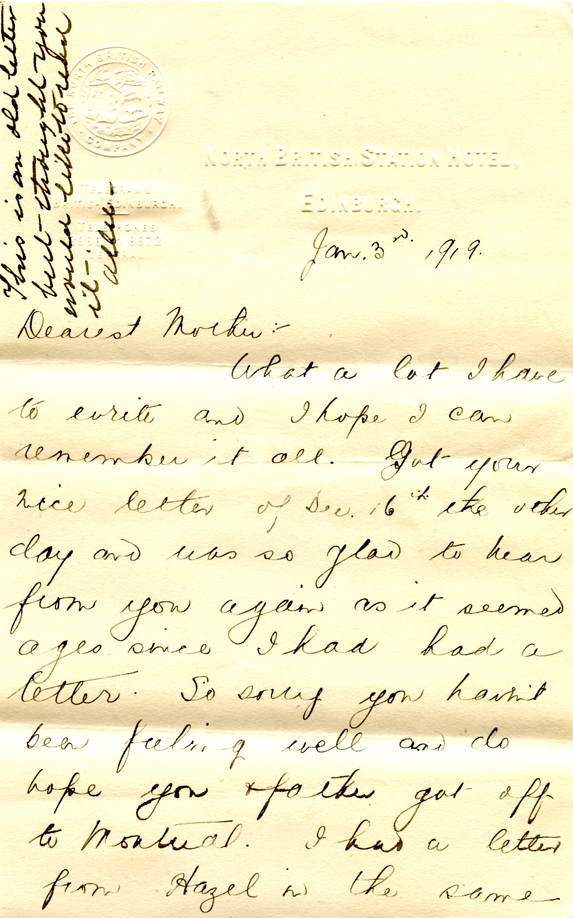 This is an old letter
but thought you
would like to read
it
THE NORTH BRITISH RAILWAY
COMPANY
NORTH BRITISH STATION HOTEL,
EDINBURGH.
TELEGRAMS
BRITISH, EDINBURGH.
TELEPHONES
Jan. 3rd. 1919.
Dearest Mother:-
What a lot I have
to write and I hope I can
remember it all. Got your
nice letter of Dec. 16th the other
day and was so glad to hear
from you again as it seemed
ages since I had had a
letter. So sorry you havn't
been feeling well and do
hope you & father got off
to Montreal. I had a letter
from Hazel in the same